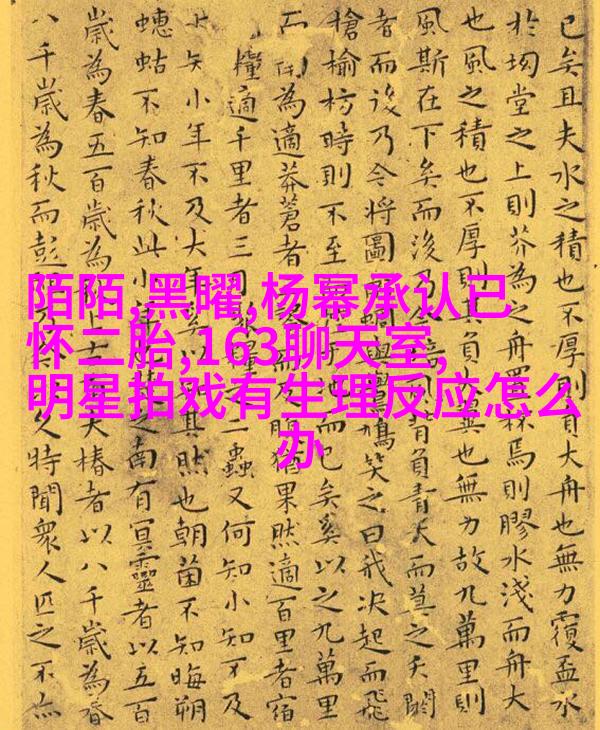 陌陌,黑曜,杨幂承认已
怀二胎,163聊天室,
明星拍戏有生理反应怎么
办
已矣且夫水之積也不厚則負大舟也無力覆盃水
於坳堂之上則芥為之舟置杯焉則膠水淺而舟大
也風之積也不厚則其負大翼也無力故九萬里則
風斯在下矣而後乃今風背負青天而莫之夭閼
者而後乃今將圖蜩與鷽鳩笑之曰我決起而飛
槍榆枋時則不至而已矣奚以之九萬里
而為適莽蒼者而反腹猶果然適百里者宿
糧適千里者三之二蟲又何知小知不及
大矢小年不及大年奚以其然也朝菌不知晦朔
蟪蛄不知春秋此小之南有冥靈者以五百
歲為春五百歲為上大椿者以八千歲為春
八千歲為秋而彭久特聞眾人匹之不亦